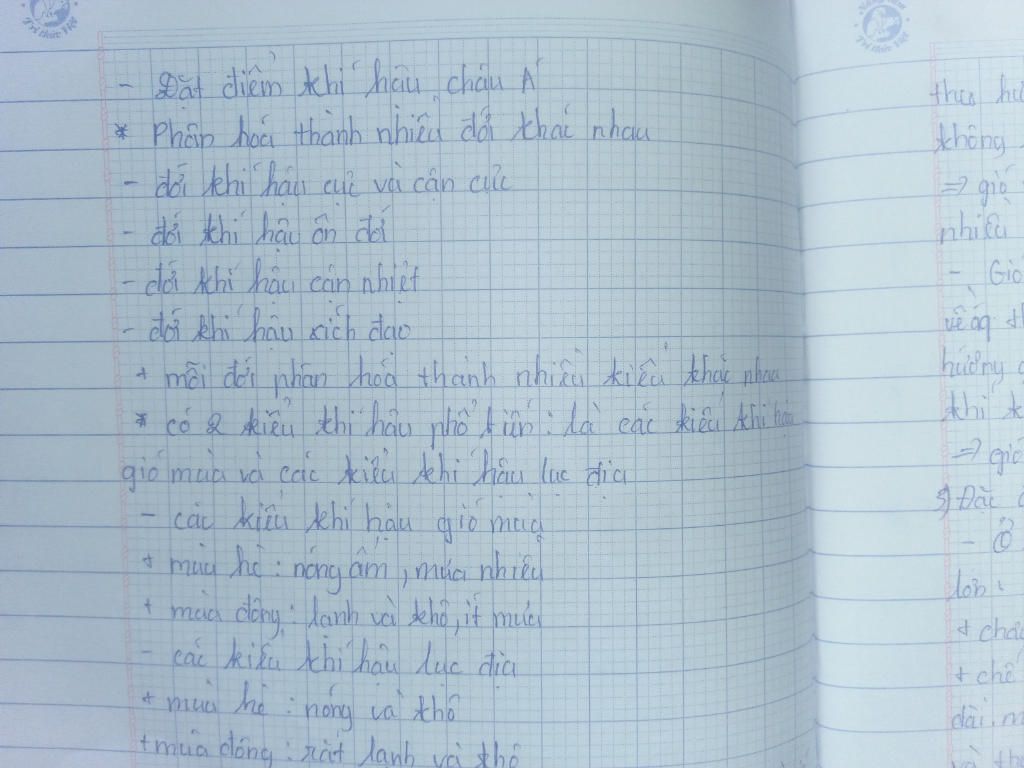 Trí thức Việt
Trí thức Việt
- Đặt điểm khí hậu châu Á
* Phân hoá thành nhiều đới khác nhau
- đới khí hậu cực và cận cực
- đới khí hậu ôn đới
- đới khí hậu cận nhiệt
- đới khí hậu xích đạo
+ mỗi đới phân hoá thành nhiều kiểu khác nhau
* có 2 kiểu khí hậu phổ biến: là các kiểu khí hậu
gió mùa và các kiểu khí hậu lục địa
- các kiểu khí hậu gió mùa
+ mùa hè: nóng ẩm, mưa nhiều
+ mùa đông: lạnh và khô, ít mưa
- các kiểu khí hậu lục địa
+ mùa hè: nóng và khô
+ mùa đông: rất lạnh và khô
không
=> gió
nhiều
- Gió
hướng
khí
=> gió
Đặc
- Ở
+ chế
dài